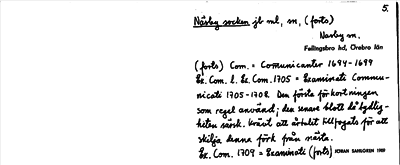 5.
Näsby socken jb ml, sn, (forts)
Näsby sn.
Fellingsbro hd, Örebro län
(forts) Com. = Communicanter 1694-1699
Ex. Com. l. Ex. Com. 1705 = Examinati Commu-
nicati 1705-1708. Den första förkortningen
som regel använd; den senare blott då tydlig-
heten särsk. krävt att årtalet tillfogats för att
skilja denna förk från nästa.
Ex. Com. 1709 = Examinati (forts) JÖRAN SAHLGREN 1959